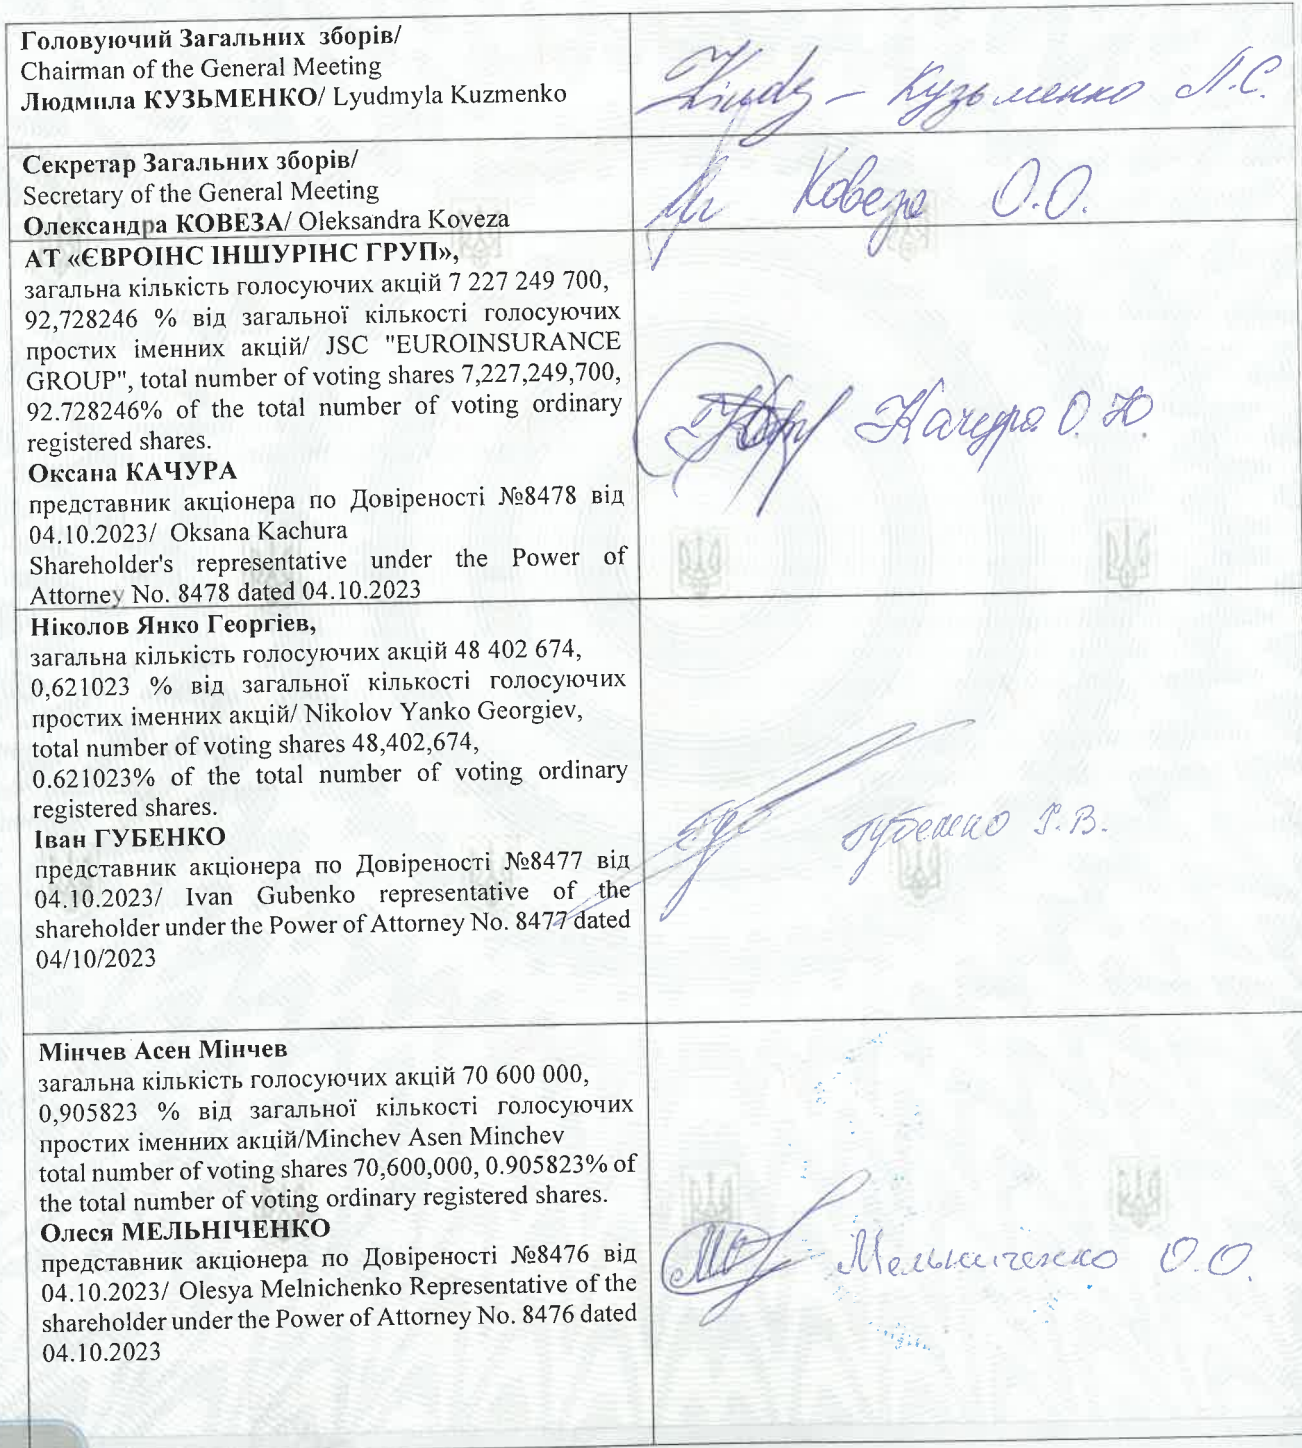 Головуючий Загальних зборів/
Chairman of the General Meeting
Людмила КУЗЬМЕНКО/ Lyudmyla Kuzmenko
Кузьменко Л.С.
Секретар Загальних зборів/
Secretary of the General Meeting
Олександра КОВЕЗА/ Oleksandra Koveza
Ковеза О.О.
АТ «ЄВРОІНС ІНШУРІНС ГРУП»,
загальна кількість голосуючих акцій 7 227 249 700,
92,728246 % від загальної кількості голосуючих
простих іменних акцій/ JSC "EUROINSURANCE
GROUP", total number of voting shares 7,227,249,700,
92.728246% of the total number of voting ordinary
registered shares.
Оксана КАЧУРА
представник акціонера по Довіреності №8478 від
04.10.2023/ Oksana Kachura
Shareholder's representative under the Power of
Attorney No. 8478 dated 04.10.2023
Качура О.Ю.
Ніколов Янко Георгіев,
загальна кількість голосуючих акцій 48 402 674,
0,621023 % від загальної кількості голосуючих
простих іменних акцій/ Nikolov Yanko Georgiev,
total number of voting shares 48,402,674,
0.621023% of the total number of voting ordinary
registered shares.
Іван ГУБЕНКО
представник акціонера по Довіреності №8477 від
04.10.2023/ Ivan Gubenko representative of the
shareholder under the Power of Attorney No. 8477 dated
04/10/2023
Губенко І.В.
Мінчев Асен Мінчев
загальна кількість голосуючих акцій 70 600 000,
0,905823 % від загальної кількості голосуючих
простих іменних акцій/Minchev Asen Minchev
total number of voting shares 70,600,000, 0.905823% of
the total number of voting ordinary registered shares.
Олеся МЕЛЬНІЧЕНКО
представник акціонера по Довіреності №8476 від
04.10.2023/ Olesya Melnichenko Representative of the
shareholder under the Power of Attorney No. 8476 dated
04.10.2023
Мельніченко О.О.